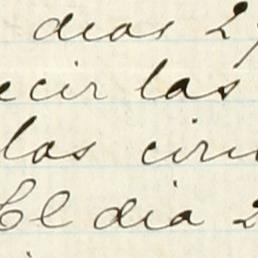 dias 2
ecir las
las ciru
El dia 2